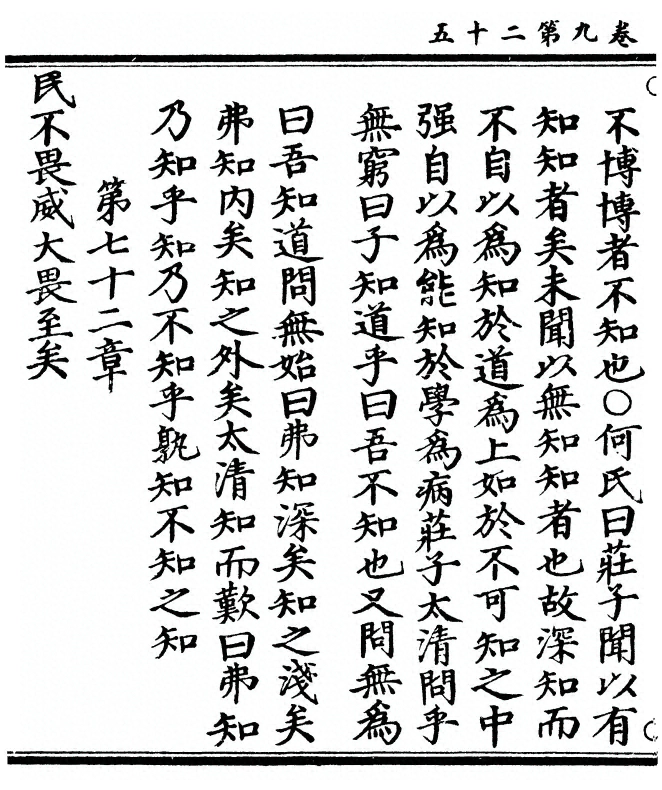 卷九第二十五
不博博者不知也〇何氏曰莊子聞以有
知知者矣未聞以無知知者也故深知而
不自以爲知於道爲上如於不可知之中
强自以爲能知於學爲病莊子太清問乎
無窮曰子知道乎曰吾不知也又問無爲
曰吾知道問無始曰弗知深矣知之淺矣
弗知内矣知之外矣太清知而歎曰弗知
乃知乎知乃不知乎孰知不知之知
第七十二章
民不畏威大畏至矣